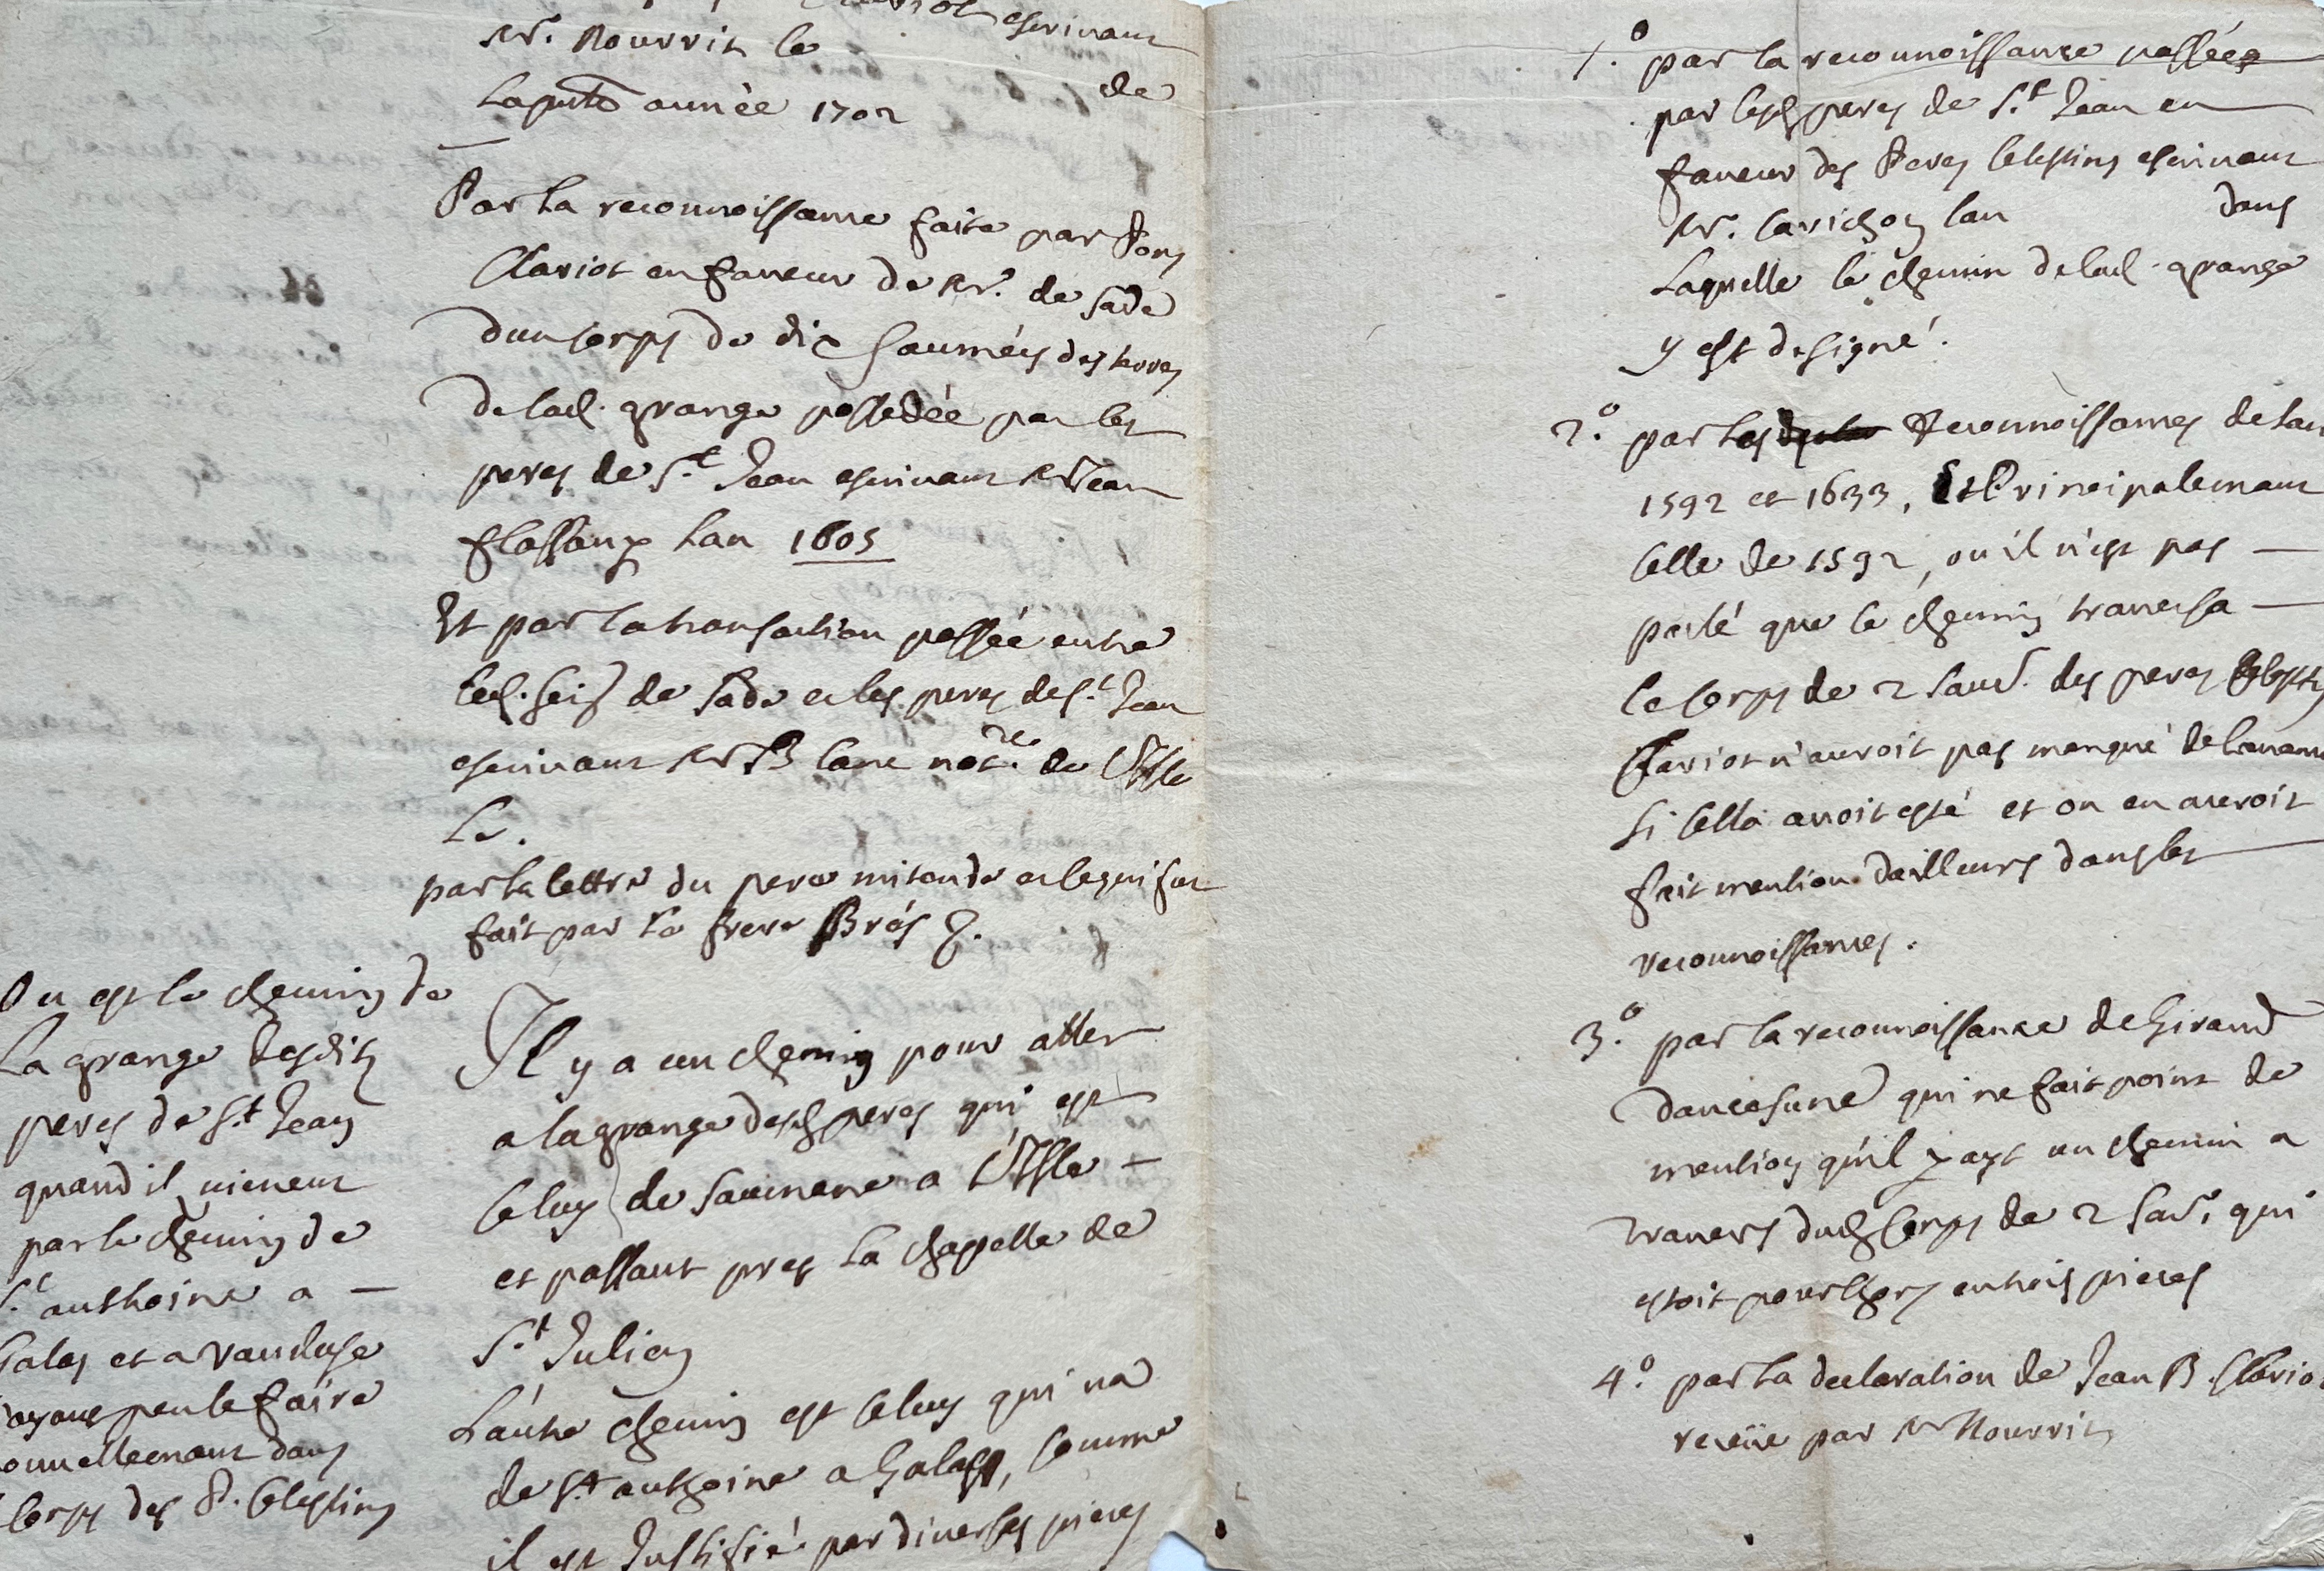 escrivant
Mr. Nourrit le
de
la pnte année 1702
Par la reconnoissance faite par Pons
Clariot en faveur de Mr. de Sade
dun corps de dix saumées des terres
de lad. grange possedée par les
peres de St. Jean escrivant Me Jean
flassany lan 1605
Et par la transaction passée entre
led. seigr de Sade et les peres de St. Jean
escrivant Me Blanc notre. de L'Isle
Le.
par la lettre du pere mitonde et le qui fut
fait par le frere Brés J.
Ou est le chemin de
la grange desdits
peres de St. Jean
quand il vienent
par le chemin de
St. anthoine a —
Galas et a Vaucluse
ayant peu le faire
nouvellemant dans
corps des P. Celestins
Il y a un chemin pour aller
a la grange desd peres qui est
celuy de Saumane a L'Isle —
et passant pres la chappelle de
St. Julien
L'autre chemin est celuy qui va
de St anthoine a Galas, comme
il est Justifié par diverses pieces
1.° par la reconnoissance passées
par lesd peres de St. Jean en
faveur des Peres Celestins escrivant
Mr. Carichon lan dans
Laquelle le chemin de lad. grange
y est designé.
2.° par les Reconnoissances de lan
1592 et 1633, et Principalemant
celle de 1592, ou il n'est pas —
parlé que le chemin traversa —
le corps de 2 saum. des peres Celestins
Clariot n'auroit pas manqué de
si cella avoit esté et on en auroit
fait mention dailleurs dans les
reconnoissances.
3.° par la reconnoissance de Giraud
dancesune qui ne fait point de
mention qu'il y ayt un chemin a
travers dud corps de 2 sau. qui
estoit pour lhors en trois pieces
4.° par la declaration de Jean B. Clariot
receüe par Me Nourrit